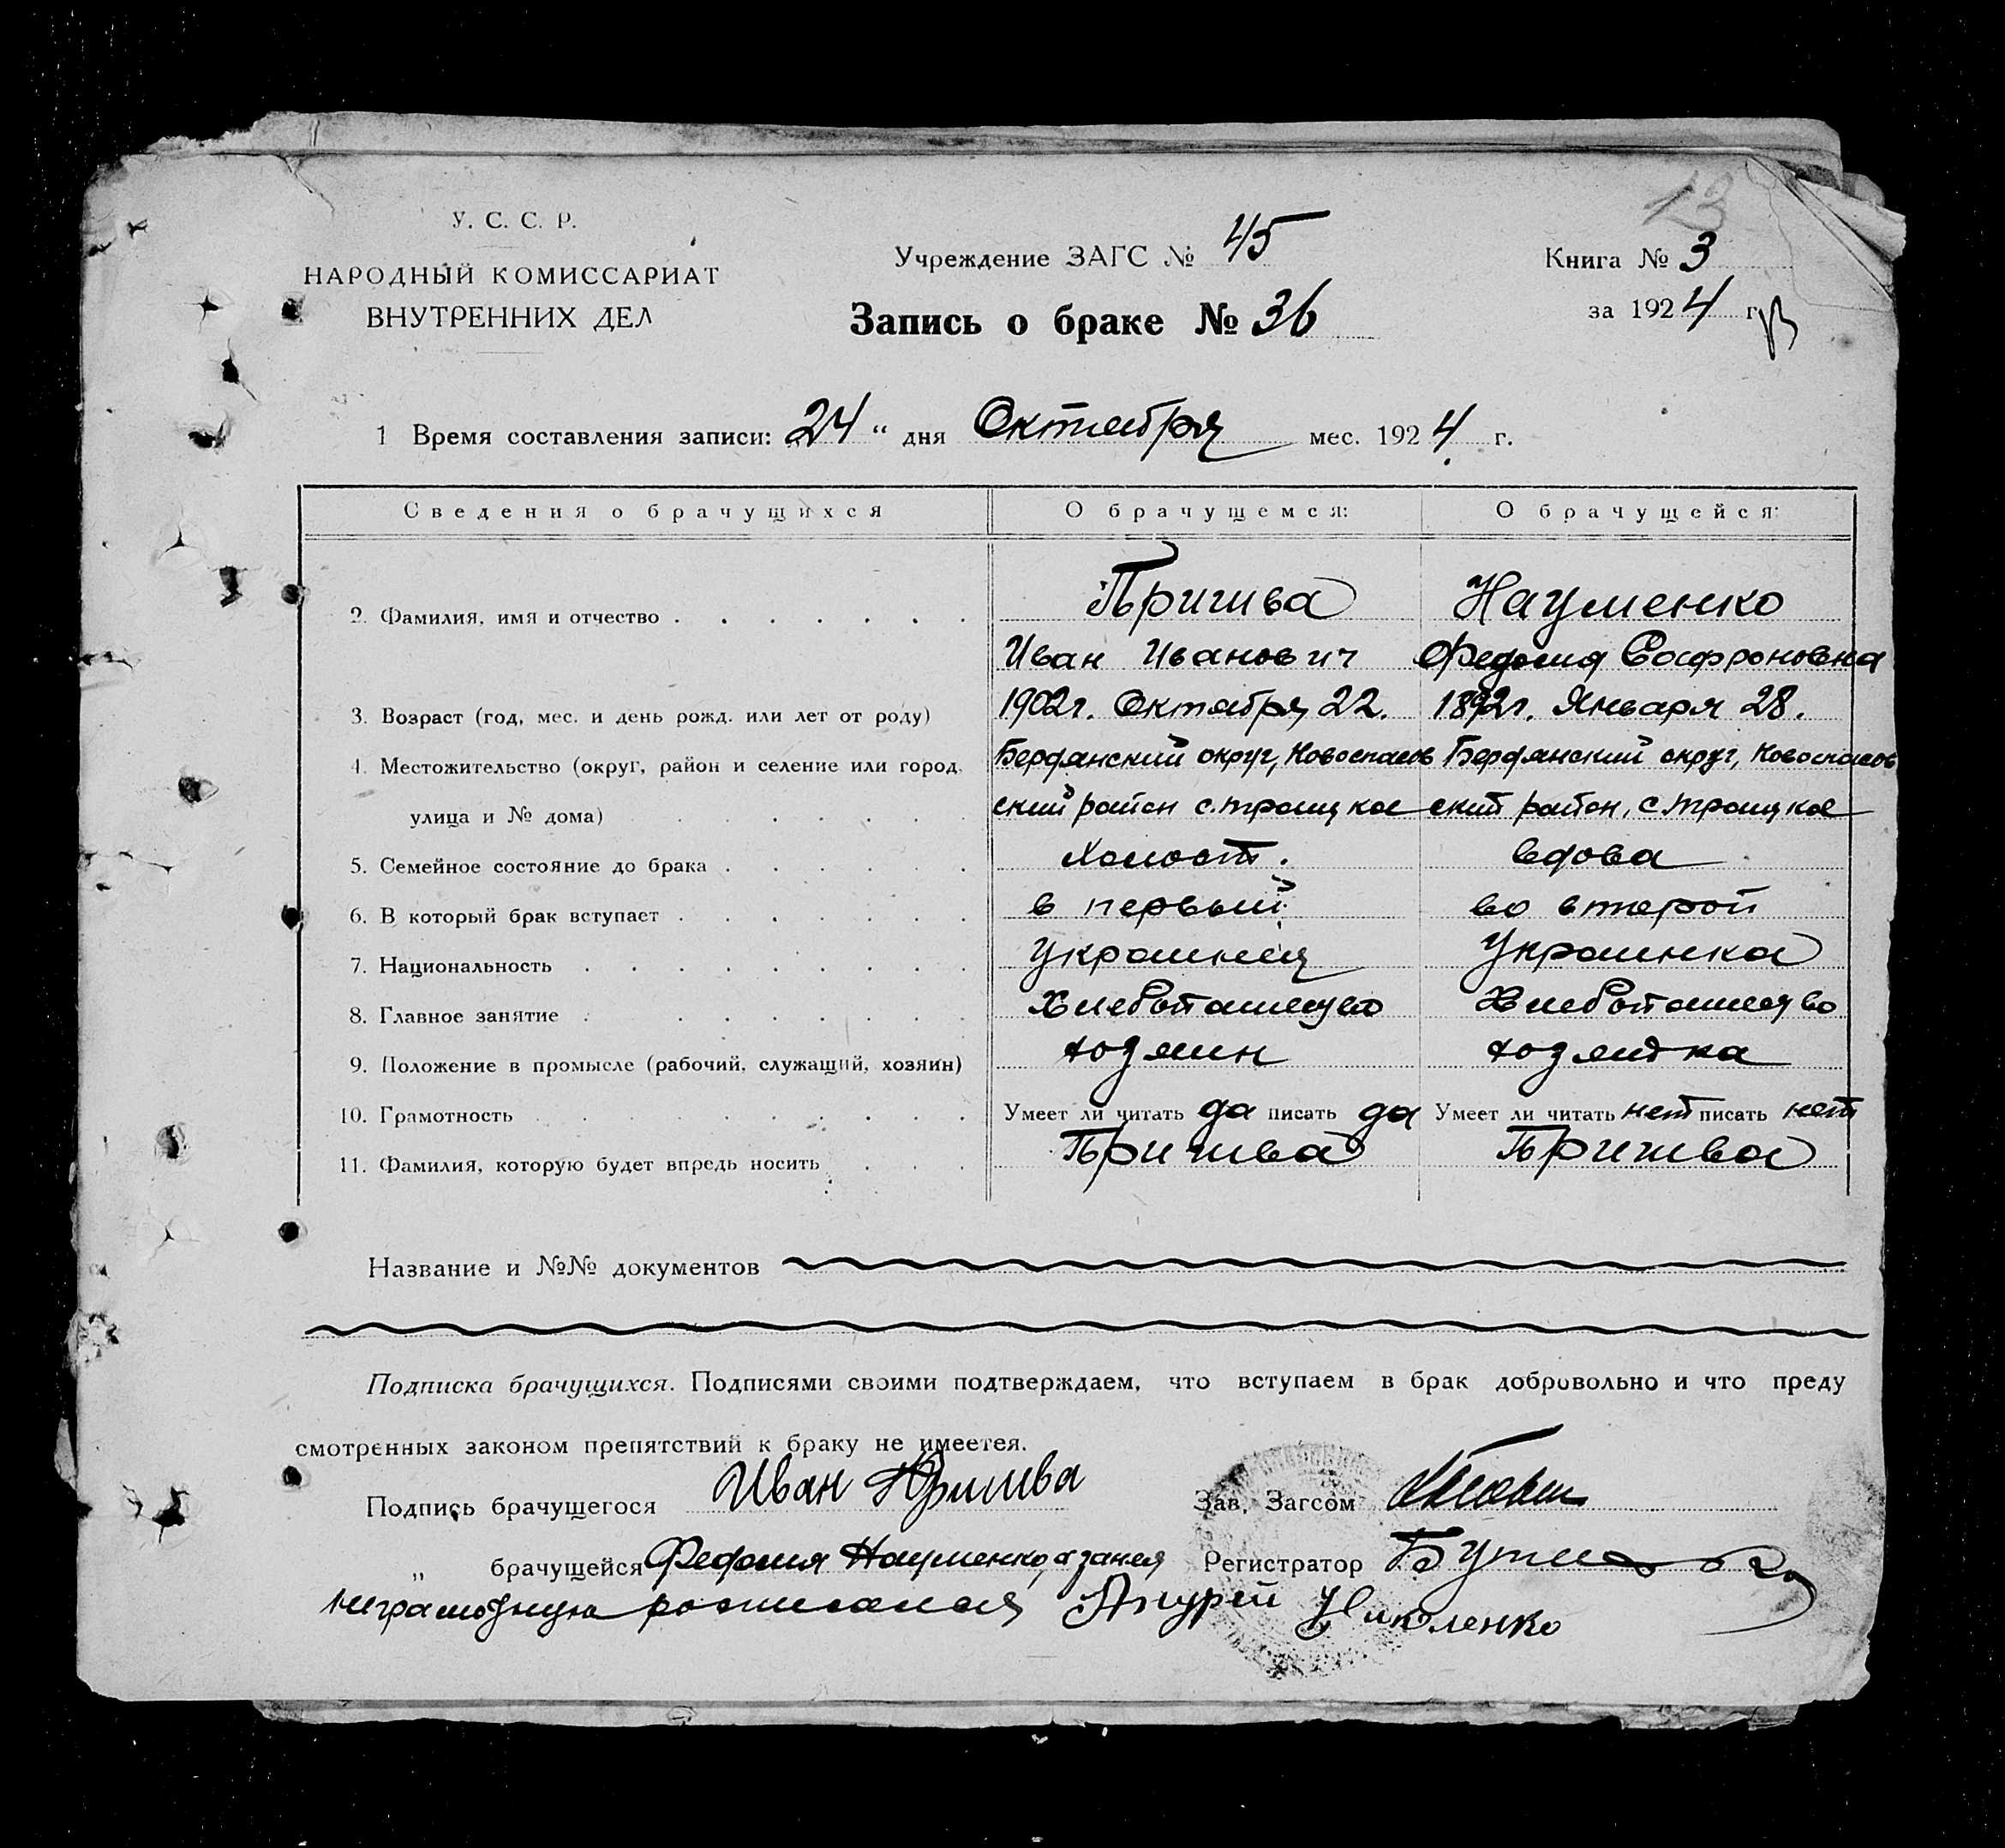 13
У. С. С. Р.
НАРОДНЫЙ КОМИССАРИАТ
ВНУТРЕННИХ ДЕЛ
Учреждение ЗАГС № 45
Запись о браке № 36
Книга № 3
за 1924 г.
1 Время составления записи: 24 " дня Октября мес. 1924 г.
Сведения о брачущихся О брачущемся: О брачущейся:
2. Фамилия, имя и отчество Пришва Науменко
Иван Иванович Федосия Софроновна
3. Возраст (год, мес. и день рожд. или лет от роду) 1902г. Октября 22. 1892г. Января 28.
4. Местожительство (округ, район и селение или город, Бердянский округ, Новоспасов Бердянский округ, Новоспасов
улица и № дома) ский район с. троицкое ский район, с. троицкое
5. Семейное состояние до брака Холост. вдова
6. В который брак вступает в первый во второй
7. Национальность Украинец Украинка
8. Главное занятие Хлебопашество Хлебопашество
9. Положение в промысле (рабочий, служащий, хозяин) хозяин хозяйка
10. Грамотность Умеет ли читать да писать да Умеет ли читать нет писать нет
11. Фамилия, которую будет впредь носить Пришва Пришва
Название и №№ документов
Подписка брачущихся. Подписями своими подтверждаем, что вступаем в брак добровольно и что преду
смотренных законом препятствий к браку не имеется.
Подпись брачущегося Иван Пришва Зав. Загсом
" брачущейся Федосия Науменко, а за нея Регистратор
неграмотную росписался Андрей Николенко